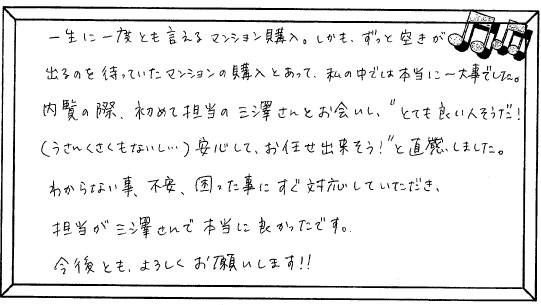 一生に一度とも言えるマンション購入。しかも、ずっと空きが
出るのを待っていたマンションの購入とあって、私の中では本当に一大事でした。
内覧の際、初めて担当の三澤さんとお会いし、"とても良い人そうだ!
(うさんくさくもないし…)安心して、お任せ出来そう!"と直感しました。
わからない事、不安、困った事にすぐ対応していただき、
担当が三澤さんで本当に良かったです。
今後とも、よろしくお願いします!!